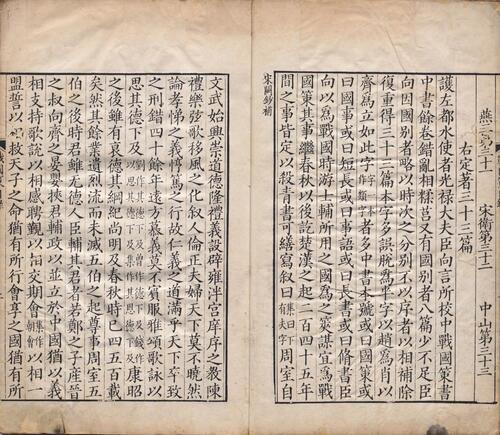 燕三第三十一 宋衛第三十二 中山第三十三
右定著三十三篇
護左都水使者光祿大夫臣向言所校中戰國策書
中書餘卷錯亂相糅莒又有國別者八篇少不足臣
向因國別者略以時次之分別不以序者以相補除
復重得三十三篇本字多誤脫為半字以趙為肖以
齊為立如此字者多中書本號或曰國策或
曰國事或曰短長或曰事語或曰長書或曰脩書臣
向以為戰國時游士輔所用之國為之筴謀宜為戰
國策其事繼春秋以後訖楚漢之起二百四十五年
間之事皆定以殺青書可繕寫敘曰周室自
宋闕鈔補
文武始興崇道德隆禮義設辟雍泮宮庠序之教陳
禮樂弦歌移風之化敘人倫正夫婦天下莫不曉然
論孝悌之義惇篤之行故仁義之道滿乎天下卒致
之刑錯四十餘年遠方慕義莫不賓服雅頌歌詠以
思其德下及康昭
之後雖有衰德其綱紀尚明及春秋時已四五百載
矣然其餘業遺烈流而未滅五伯之起尊事周室五
伯之後時君雖無德人臣輔其君者若鄭之子產晉
之叔向齊之晏嬰挾君輔政以並立於中國猶以義
相支持歌說以相感聘覲以相交期會以相一
盟誓以相救天子之命猶有所行會享之國猶有所